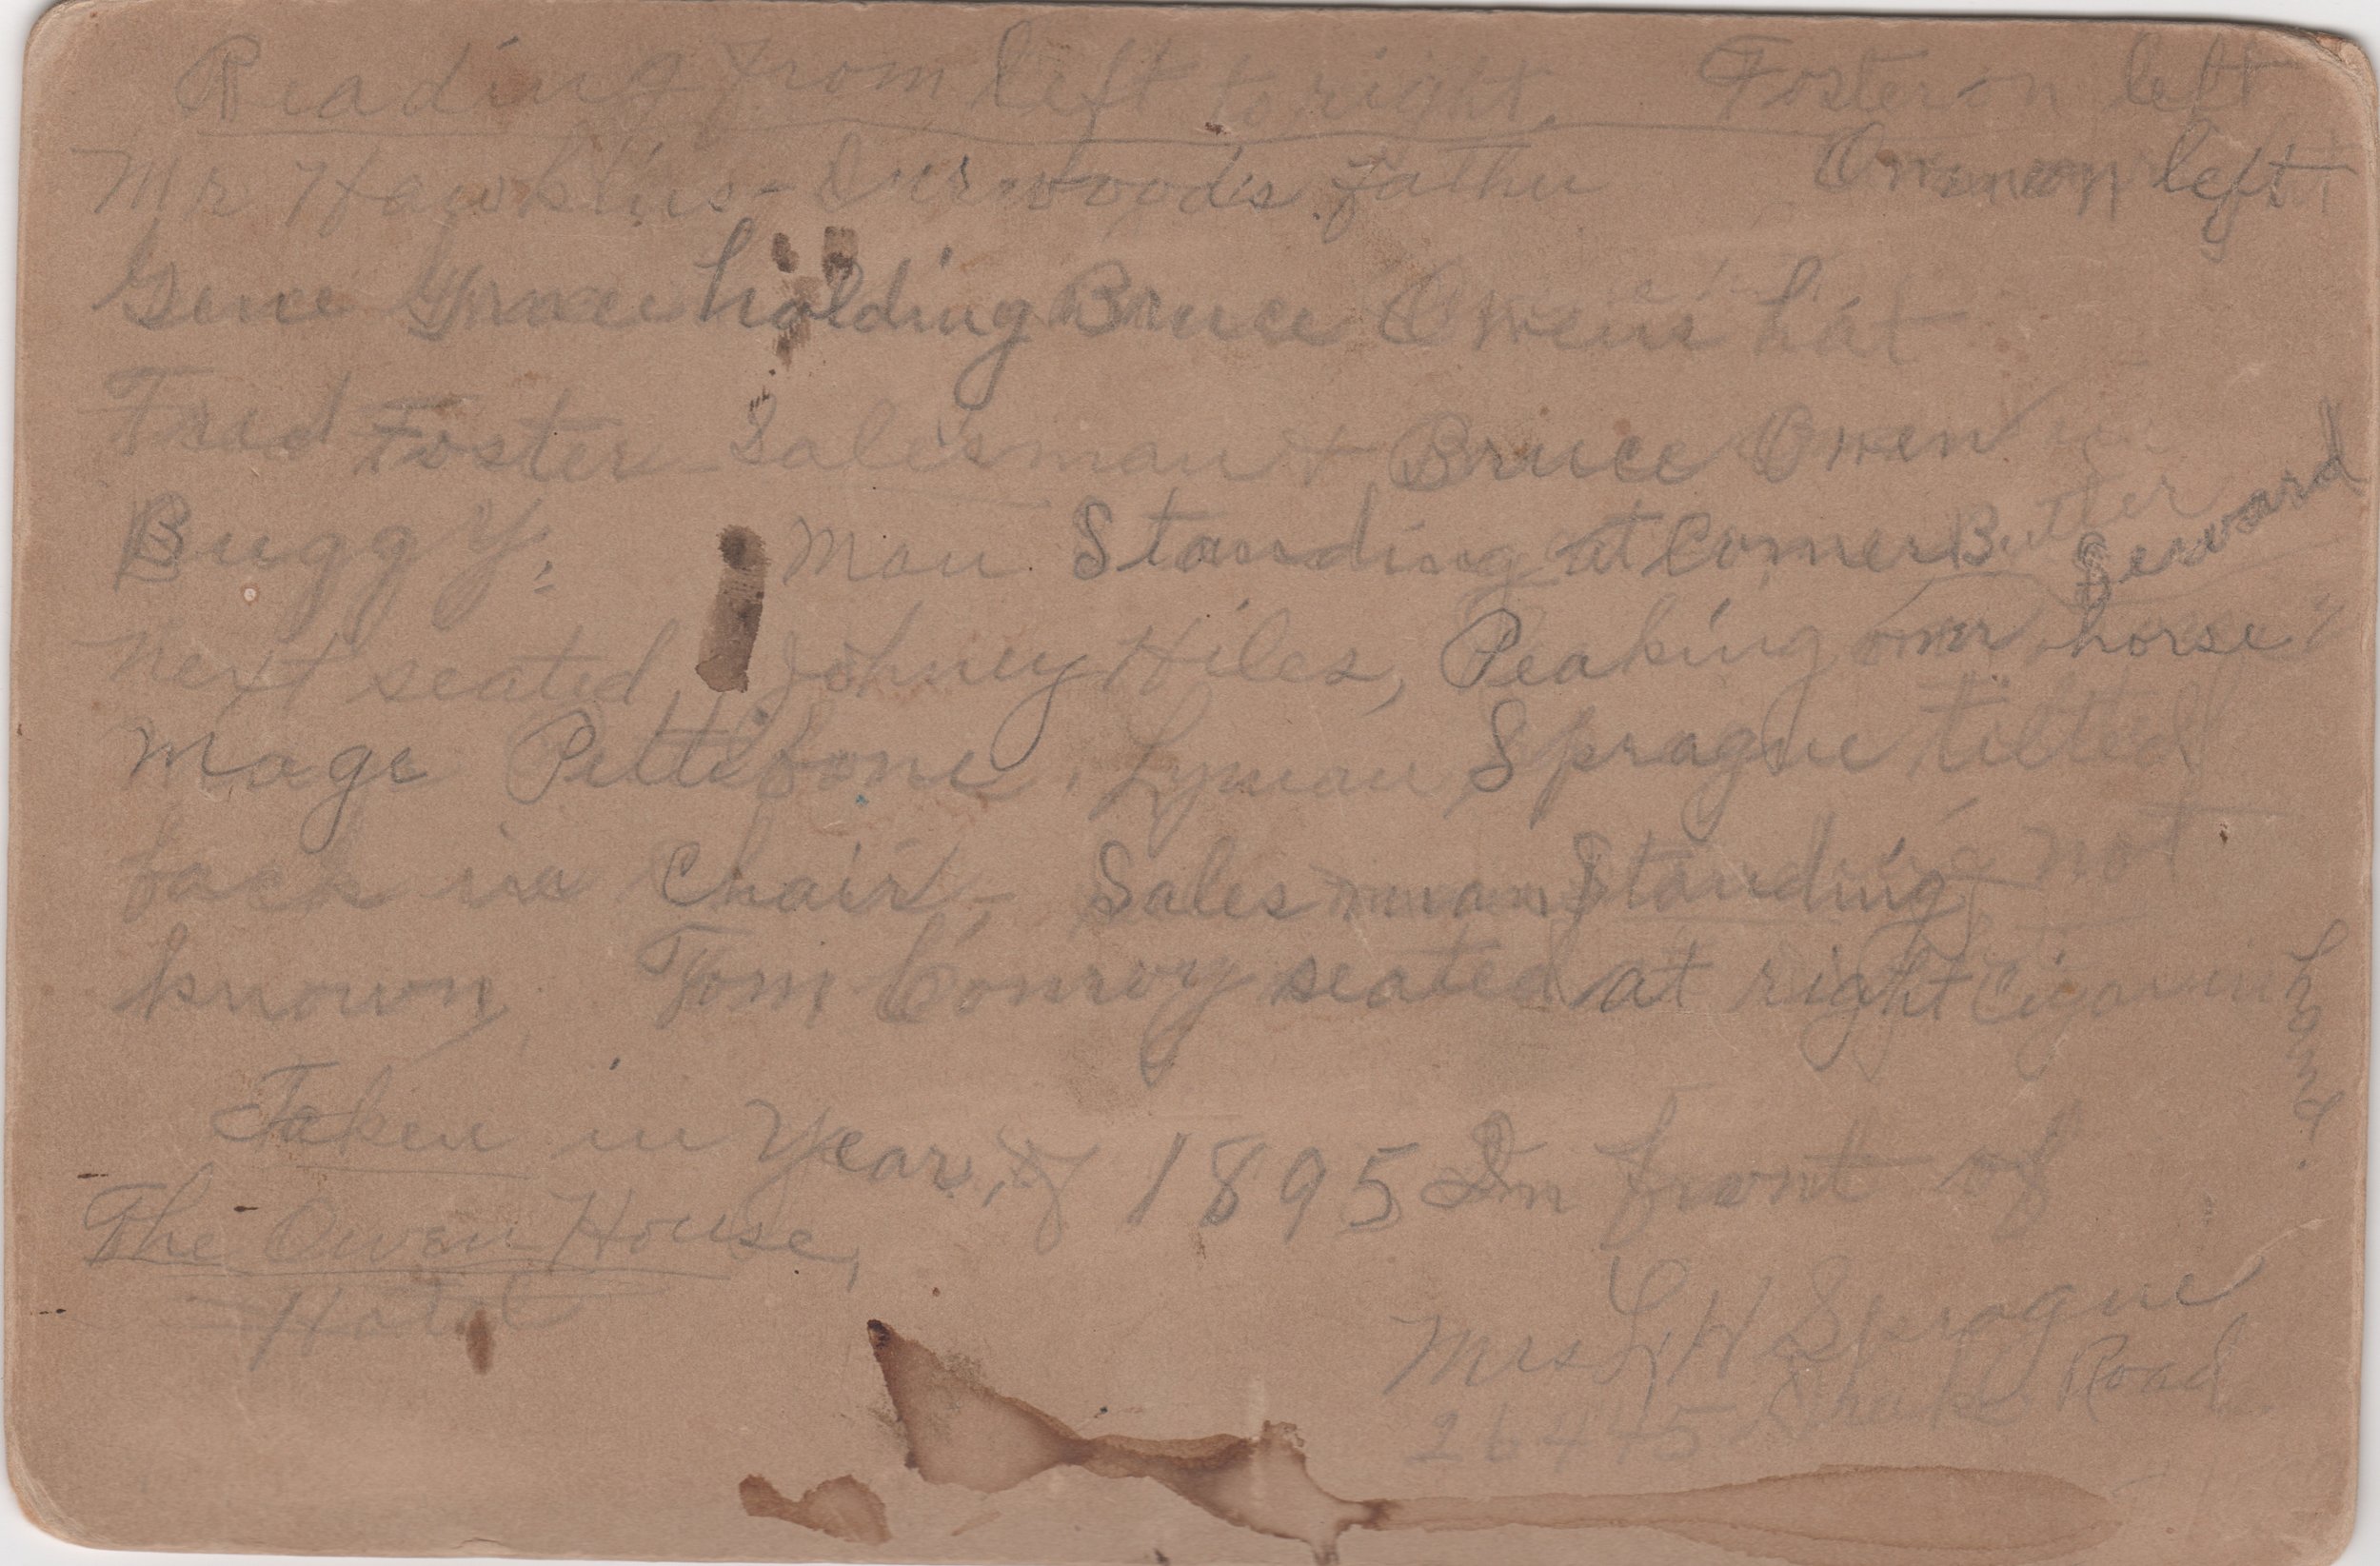 Reading from left to right. Foster on left
Mr Hawkins - Durwood's father Owen on left
Gene Grace holding Bruce Owens hat
Fred Foster Salesman + Bruce Owen in
Buggy. Man Standing at Corner Butler Seward
Next seated, Johney Hiles, Peaking over horse
Mage Pettibone, Lyman Sprague, tilted
back in Chair - Sales man Standing not
known, Tom Conroy seated at right Cigar in hand.
Taken in Year, of 1895 In front of
The Owen House,
Hotel
Mrs L H Sprague
26445 Road